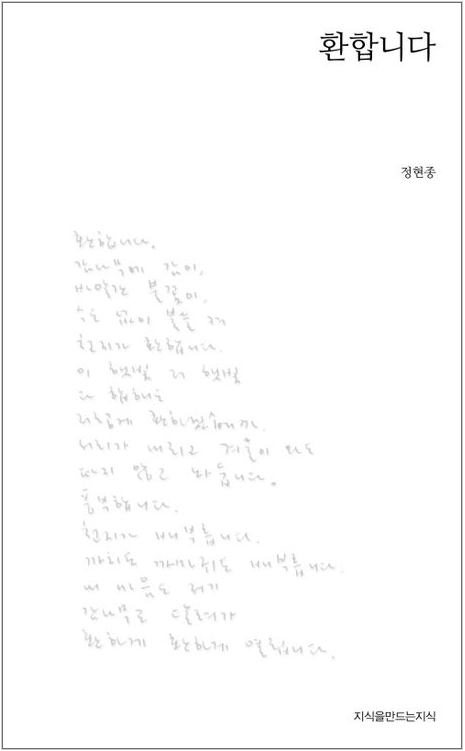 환합니다
정현종
환합니다.
감나무에 감이,
바알간 불꽃이,
수도 없이 불을 켜
천지가 환합니다.
이 햇빛 저 햇빛
다 합해도
저렇게 환하겠습니까.
서리가 내리고 겨울이 와도
따지 않고 놔둡니다.
풍부합니다.
천지가 배부릅니다.
까치도 까마귀도 배부릅니다.
내 마음도 저기
감나무로 달려가
환하게 환하게 열립니다.
지식을만드는지식